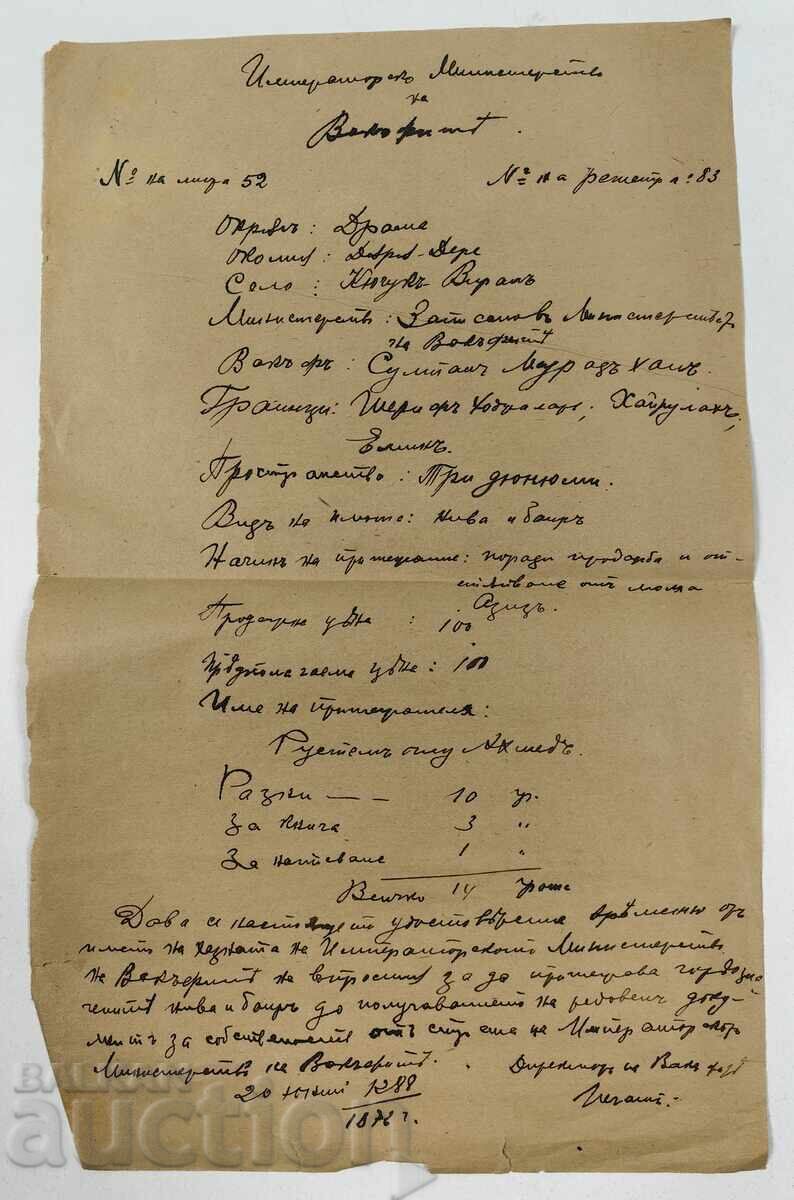 Императорско Министерство
на
Вакъфитѣ.
№ на листа 52 № на регистра: 83
Окрѫгъ: Драма
Околия: Дере
Село: Кючукъ-Виранъ
Министерство: Министерството
на Вакъфитѣ
Вакъфъ: Султанъ Мурадъ Ханъ.
Граници: Шерифъ Ходжаларъ; Хайрулахъ;
Еминъ.
Пространство: Три дюнюми.
Видъ на имота: нива и баиръ
Начинъ на притежание: поради продажба и от-
стѫпване отъ молла
Азизъ.
Продажна цѣна: 100
Прѣдполагаема цѣна: 100
Име на притежателя:
Рустемъ оглу Ахмедъ.
Разни — — 10 гр.
За книга 3 "
За написване 1 "
Всичко 14 гроша
Дава се настоящето удостовѣрение врѣменно отъ
името на хазната на Императорското Министерство
на Вакъфитѣ на въпросния за да притежава горѣозна
ченитѣ нива и баиръ до получаването на редовенъ доку-
ментъ за собственность отъ страна на Императорското
Министерство на Вакъфитѣ.
Директоръ на Вакъфитѣ
20 юний 1288
1872 г.
Печатъ:-
auction